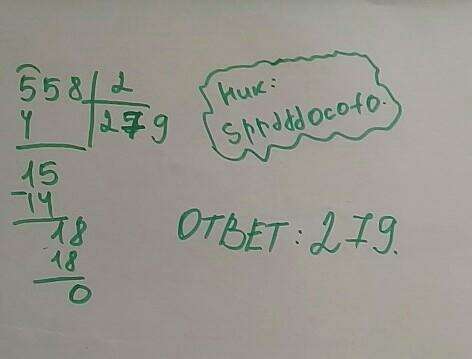 558 | 2
4 | 279
15
-14
18
18
0
Ник:
Sprddddocofo.
ОТВЕТ: 279.